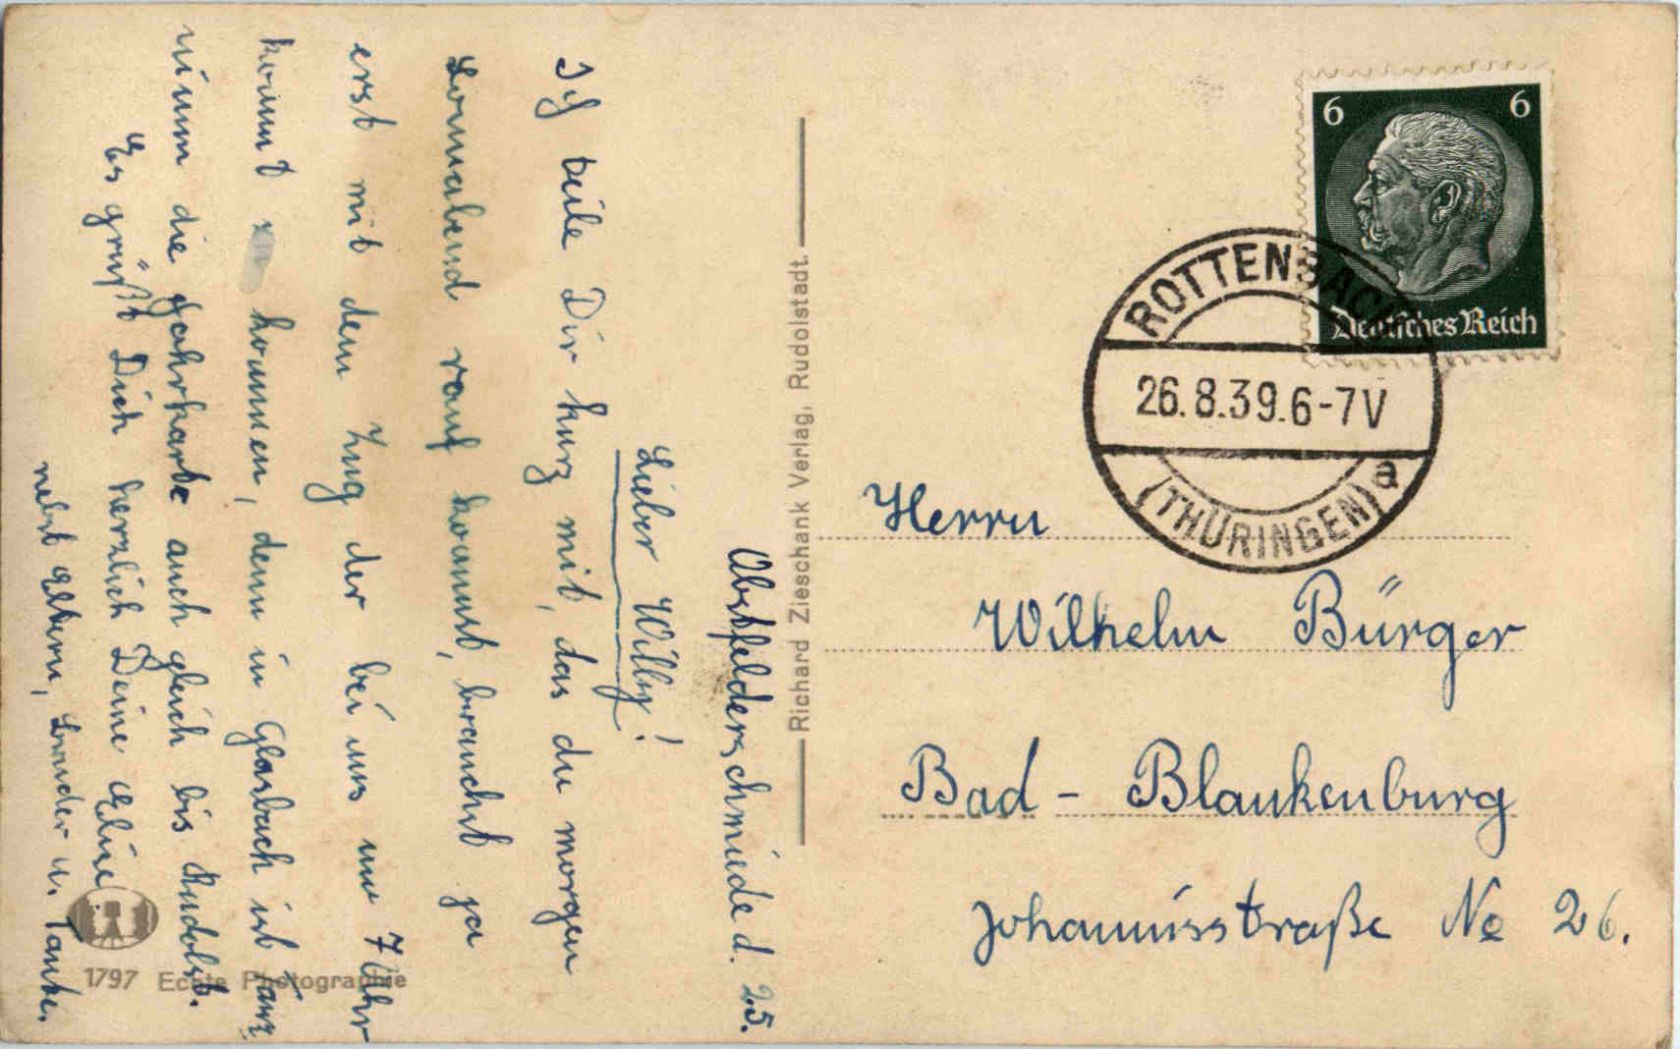 Obstfelderschmiede d. 25.
Lieber Willy!
Ich teile Dir kurz mit, das du morgen
Sonnabend rauf kommst, brauchst ja
erst mit dem Zug der bei uns um 7 Uhr
kommt kommen, denn in Glasbach ist Tanz
nimm die Fahrkarte auch gleich bis Rudolst.
Es grüßt Dich herzlich Deine
nebst Eltern, Bruder u. Tante.
1797 Echte Photographie
Richard Zieschank Verlag, Rudolstadt.
6 6
Deutsches Reich
ROTTENBACH
26.8.39.6-7V
(THÜRINGEN) a
Herrn
Wilhelm Bürger
Bad - Blankenburg
Johannisstraße No 26.